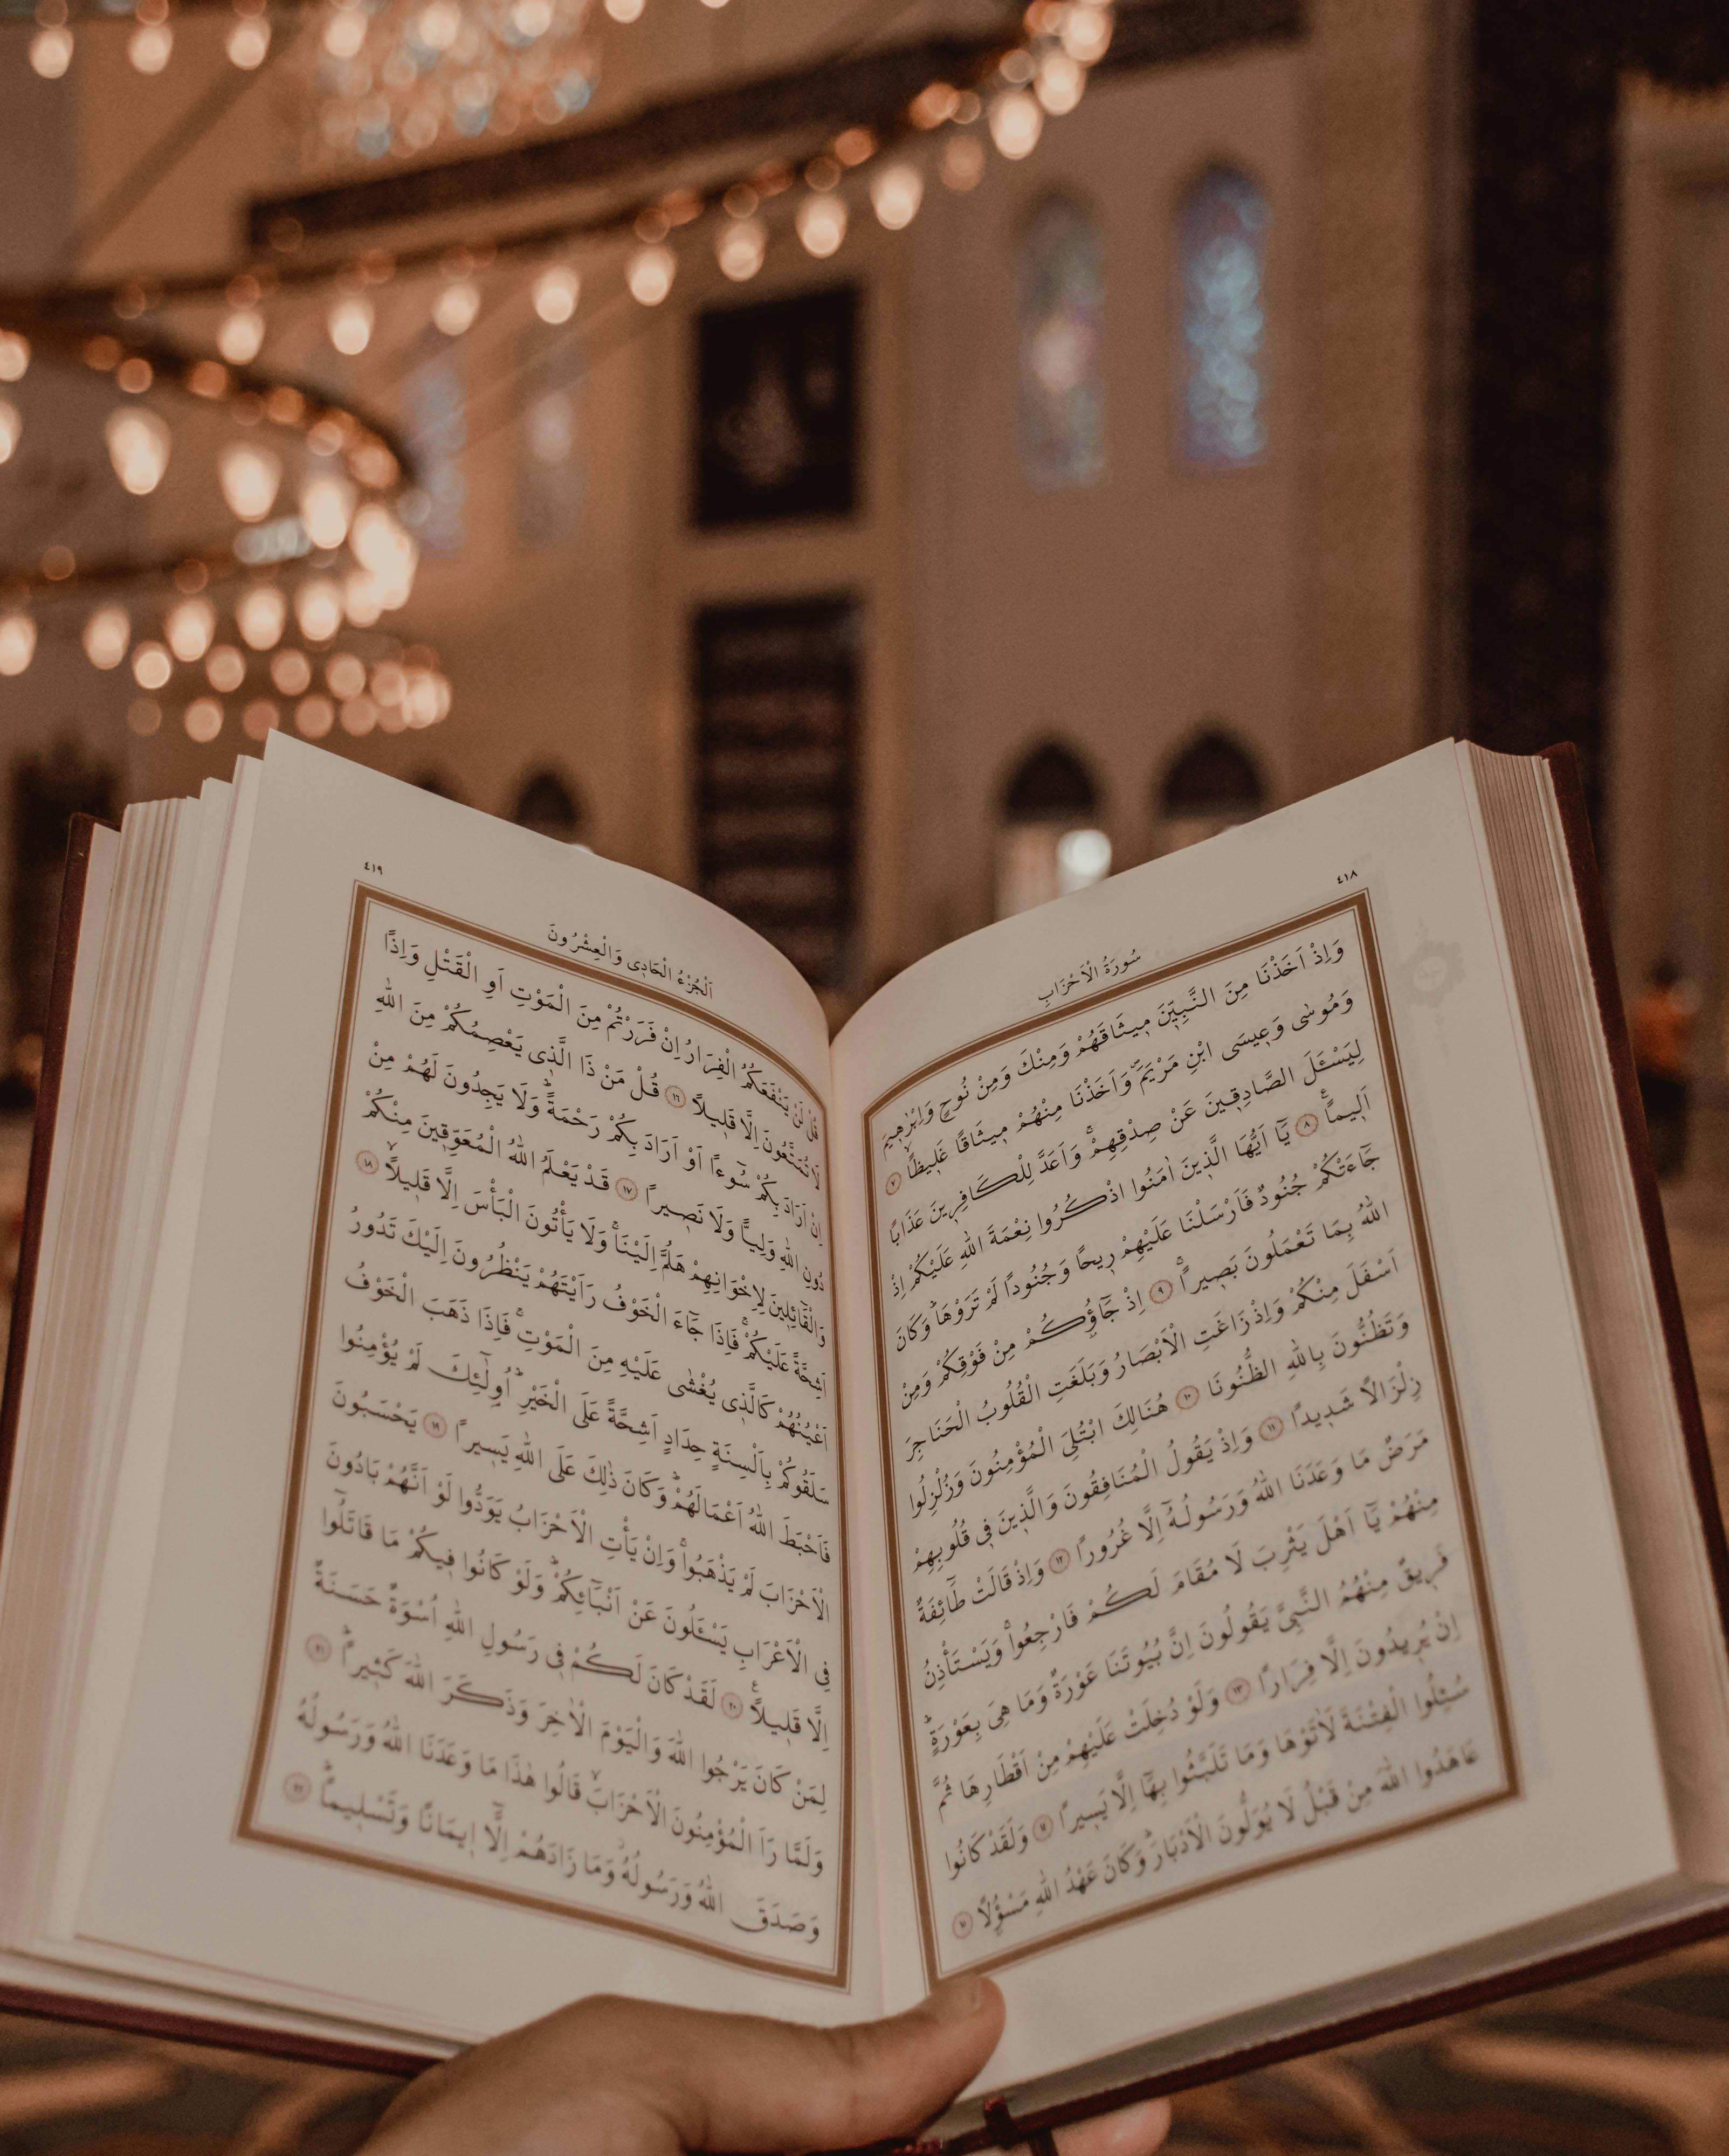 ٤١٨
سُورَةُ الْاَحْزَابِ
وَاِذْ اَخَذْنَا مِنَ النَّبِيّ۪نَ م۪يثَاقَهُمْ وَمِنْكَ وَمِنْ نُوحٍ وَاِبْرٰه۪يمَ
وَمُوسٰى وَع۪يسَى ابْنِ مَرْيَمَۖ وَاَخَذْنَا مِنْهُمْ م۪يثَاقًا غَل۪يظًاۙ ﴿٧﴾
لِيَسْـَٔلَ الصَّادِق۪ينَ عَنْ صِدْقِهِمْۚ وَاَعَدَّ لِلْكَافِر۪ينَ عَذَابًا
اَل۪يمًا۟ ﴿٨﴾ يَٓا اَيُّهَا الَّذ۪ينَ اٰمَنُوا اذْكُرُوا نِعْمَةَ اللّٰهِ عَلَيْكُمْ اِذْ
جَٓاءَتْكُمْ جُنُودٌ فَاَرْسَلْنَا عَلَيْهِمْ ر۪يحًا وَجُنُودًا لَمْ تَرَوْهَاۜ وَكَانَ
اللّٰهُ بِمَا تَعْمَلُونَ بَص۪يرًاۚ ﴿٩﴾ اِذْ جَٓاؤُ۫كُمْ مِنْ فَوْقِكُمْ وَمِنْ
اَسْفَلَ مِنْكُمْ وَاِذْ زَاغَتِ الْاَبْصَارُ وَبَلَغَتِ الْقُلُوبُ الْحَنَاجِرَ
وَتَظُنُّونَ بِاللّٰهِ الظُّنُونَا ﴿١٠﴾ هُنَالِكَ ابْتُلِيَ الْمُؤْمِنُونَ وَزُلْزِلُوا
زِلْزَالًا شَد۪يدًا ﴿١١﴾ وَاِذْ يَقُولُ الْمُنَافِقُونَ وَالَّذ۪ينَ ف۪ي قُلُوبِهِمْ
مَرَضٌ مَا وَعَدَنَا اللّٰهُ وَرَسُولُهُٓ اِلَّا غُرُورًا ﴿١٢﴾ وَاِذْ قَالَتْ طَٓائِفَةٌ
مِنْهُمْ يَٓا اَهْلَ يَثْرِبَ لَا مُقَامَ لَكُمْ فَارْجِعُواۚ وَيَسْتَأْذِنُ
فَر۪يقٌ مِنْهُمُ النَّبِيَّ يَقُولُونَ اِنَّ بُيُوتَنَا عَوْرَةٌ وَمَا هِيَ بِعَوْرَةٍۜ
اِنْ يُر۪يدُونَ اِلَّا فِرَارًا ﴿١٣﴾ وَلَوْ دُخِلَتْ عَلَيْهِمْ مِنْ اَقْطَارِهَا ثُمَّ
سُئِلُوا الْفِتْنَةَ لَاٰتَوْهَا وَمَا تَلَبَّثُوا بِهَٓا اِلَّا يَس۪يرًا ﴿١٤﴾ وَلَقَدْ كَانُوا
عَاهَدُوا اللّٰهَ مِنْ قَبْلُ لَا يُوَلُّونَ الْاَدْبَارَۜ وَكَانَ عَهْدُ اللّٰهِ مَسْؤُ۫لًا ﴿١٥﴾
٤١٩
اَلْجُزْءُ الْحَاد۪ي وَالْعِشْرُونَ
قُلْ لَنْ يَنْفَعَكُمُ الْفِرَارُ اِنْ فَرَرْتُمْ مِنَ الْمَوْتِ اَوِ الْقَتْلِ وَاِذًا
لَا تُمَتَّعُونَ اِلَّا قَل۪يلًا ﴿١٦﴾ قُلْ مَنْ ذَا الَّذ۪ي يَعْصِمُكُمْ مِنَ اللّٰهِ
اِنْ اَرَادَ بِكُمْ سُٓوءًا اَوْ اَرَادَ بِكُمْ رَحْمَةًۜ وَلَا يَجِدُونَ لَهُمْ مِنْ
دُونِ اللّٰهِ وَلِيًّا وَلَا نَص۪يرًا ﴿١٧﴾ قَدْ يَعْلَمُ اللّٰهُ الْمُعَوِّق۪ينَ مِنْكُمْ
وَالْقَٓائِل۪ينَ لِاِخْوَانِهِمْ هَلُمَّ اِلَيْنَاۚ وَلَا يَأْتُونَ الْبَأْسَ اِلَّا قَل۪يلًاۙ ﴿١٨﴾
اَشِحَّةً عَلَيْكُمْۚ فَاِذَا جَٓاءَ الْخَوْفُ رَاَيْتَهُمْ يَنْظُرُونَ اِلَيْكَ تَدُورُ
اَعْيُنُهُمْ كَالَّذ۪ي يُغْشٰى عَلَيْهِ مِنَ الْمَوْتِۚ فَاِذَا ذَهَبَ الْخَوْفُ
سَلَقُوكُمْ بِاَلْسِنَةٍ حِدَادٍ اَشِحَّةً عَلَى الْخَيْرِۜ اُو۬لٰٓئِكَ لَمْ يُؤْمِنُوا
فَاَحْبَطَ اللّٰهُ اَعْمَالَهُمْۜ وَكَانَ ذٰلِكَ عَلَى اللّٰهِ يَس۪يرًا ﴿١٩﴾ يَحْسَبُونَ
الْاَحْزَابَ لَمْ يَذْهَبُواۚ وَاِنْ يَأْتِ الْاَحْزَابُ يَوَدُّوا لَوْ اَنَّهُمْ بَادُونَ
فِي الْاَعْرَابِ يَسْـَٔلُونَ عَنْ اَنْبَٓائِكُمْۜ وَلَوْ كَانُوا ف۪يكُمْ مَا قَاتَلُٓوا
اِلَّا قَل۪يلًا۟ ﴿٢٠﴾ لَقَدْ كَانَ لَكُمْ ف۪ي رَسُولِ اللّٰهِ اُسْوَةٌ حَسَنَةٌ
لِمَنْ كَانَ يَرْجُوا اللّٰهَ وَالْيَوْمَ الْاٰخِرَ وَذَكَرَ اللّٰهَ كَث۪يرًاۜ ﴿٢١﴾
وَلَمَّا رَاَ الْمُؤْمِنُونَ الْاَحْزَابَۙ قَالُوا هٰذَا مَا وَعَدَنَا اللّٰهُ وَرَسُولُهُ
وَصَدَقَ اللّٰهُ وَرَسُولُهُۘ وَمَا زَادَهُمْ اِلَّٓا ا۪يمَانًا وَتَسْل۪يمًاۜ ﴿٢٢﴾